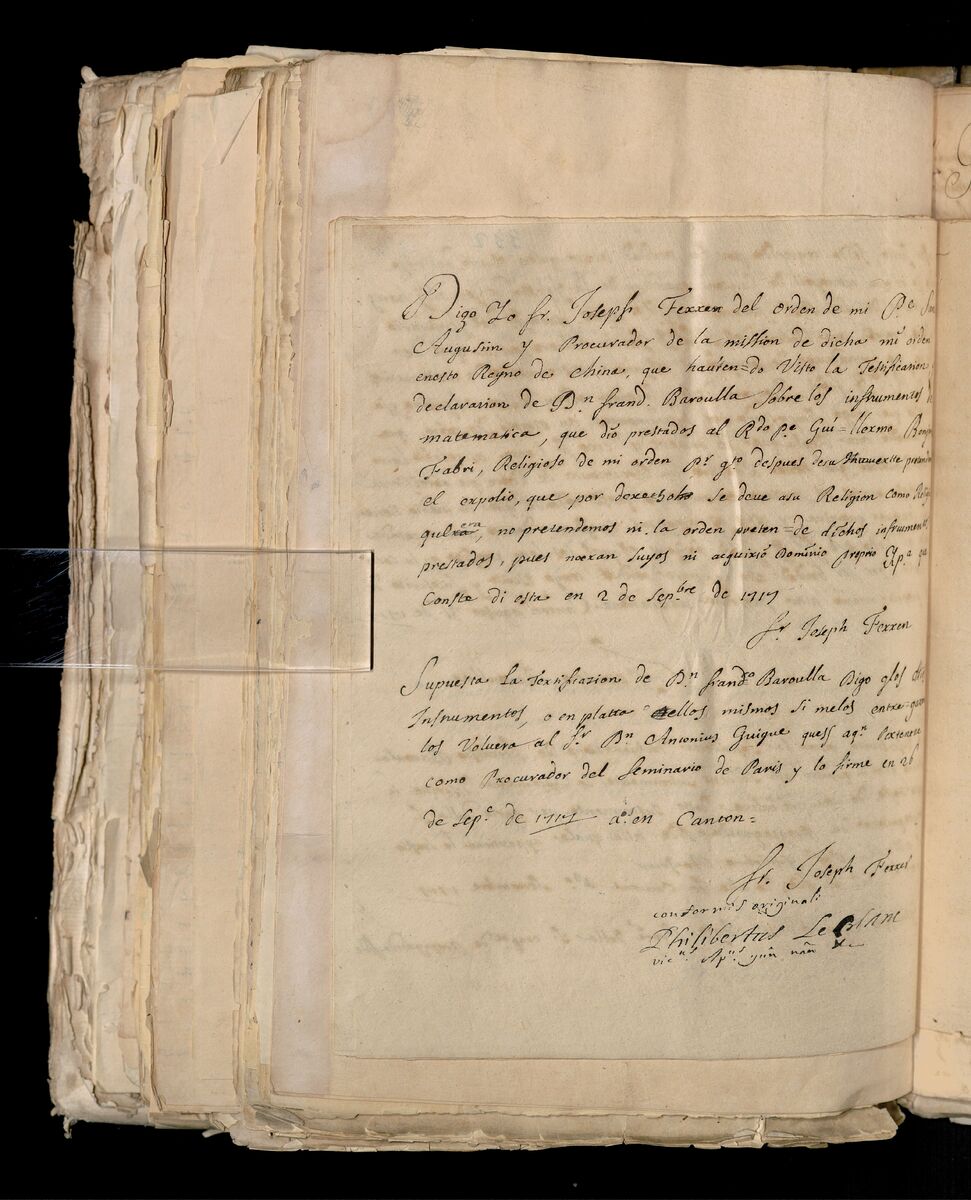 Digo Yo fr. Joseph Ferrer del orden de mi Pe
Augustin y Procurador de la mission de dicha mi orden
enesto Reyno de China, que hauien=do Visto la Testificacion
declarazion de Dn frand. Baroulla Sobre los instrumentos
matematica, que dio prestados al Rdo Pe Gui=llermo
Fabri, Religioso de mi orden pr qto despues desu muerte
el expolio, que por derecho se deve asu Religion como
era, no pretendemos ni la orden preten=de dichos instrumentos
prestados, pues noeran suyos ni acquirió Dominio proprio
Conste di esta en 2 de Sepbre de 1717
fr. Joseph Ferrer
Supuesta la Testificazion de Dn frando Baroulla Digo qlos
Instrumentos, o en platta ellos mismos si melos entre=garen
los Volvera al Sr Dn Antonius Guigue
como Procurador del Seminario de Paris y lo firme en 26
de Sepe de 1717 aos en Canton=
fr. Joseph Ferrer
conformis originali
Philibertus Le Blanc
vicus Apus